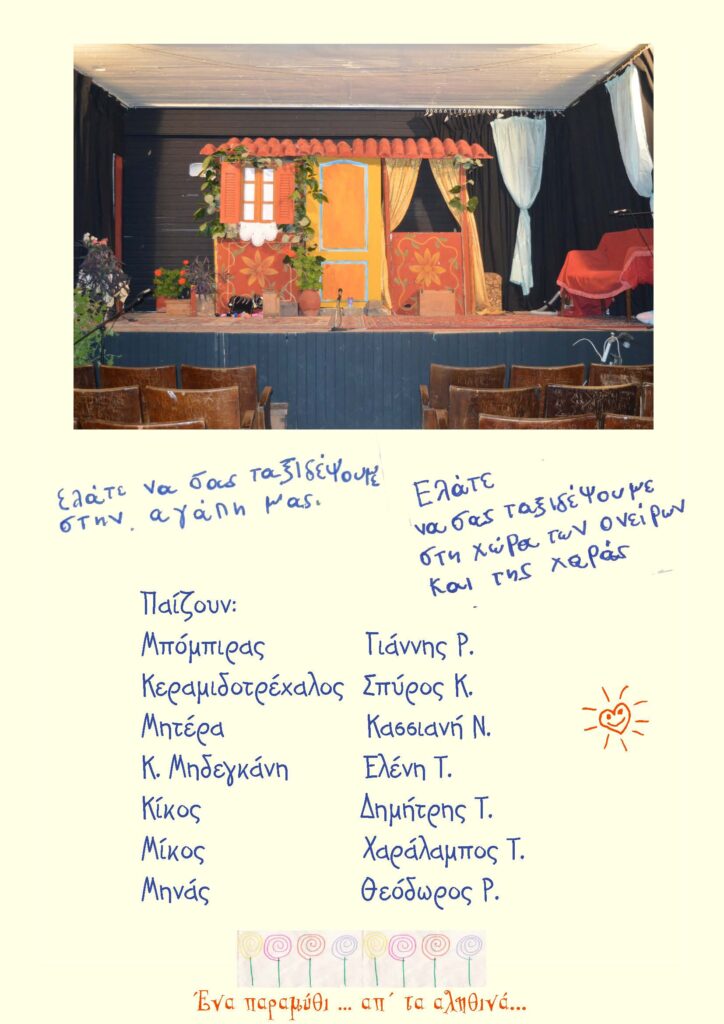 Ελάτε να σας ταξιδέψουμε
στην αγάπη μας.
Ελάτε
να σας ταξιδέψουμε
στη χώρα των ονείρων
και της χαράς
Παίζουν:
Μπόμπιρας Γιάννης Ρ.
Κεραμιδοτρέχαλος Σπύρος Κ.
Μητέρα Κασσιανή Ν.
Κ. Μηδεγκάνη Ελένη Τ.
Κίκος Δημήτρης Τ.
Μίκος Χαράλαμπος Τ.
Μηνάς Θεόδωρος Ρ.
Ένα παραμύθι ... απ΄ τα αληθινά...